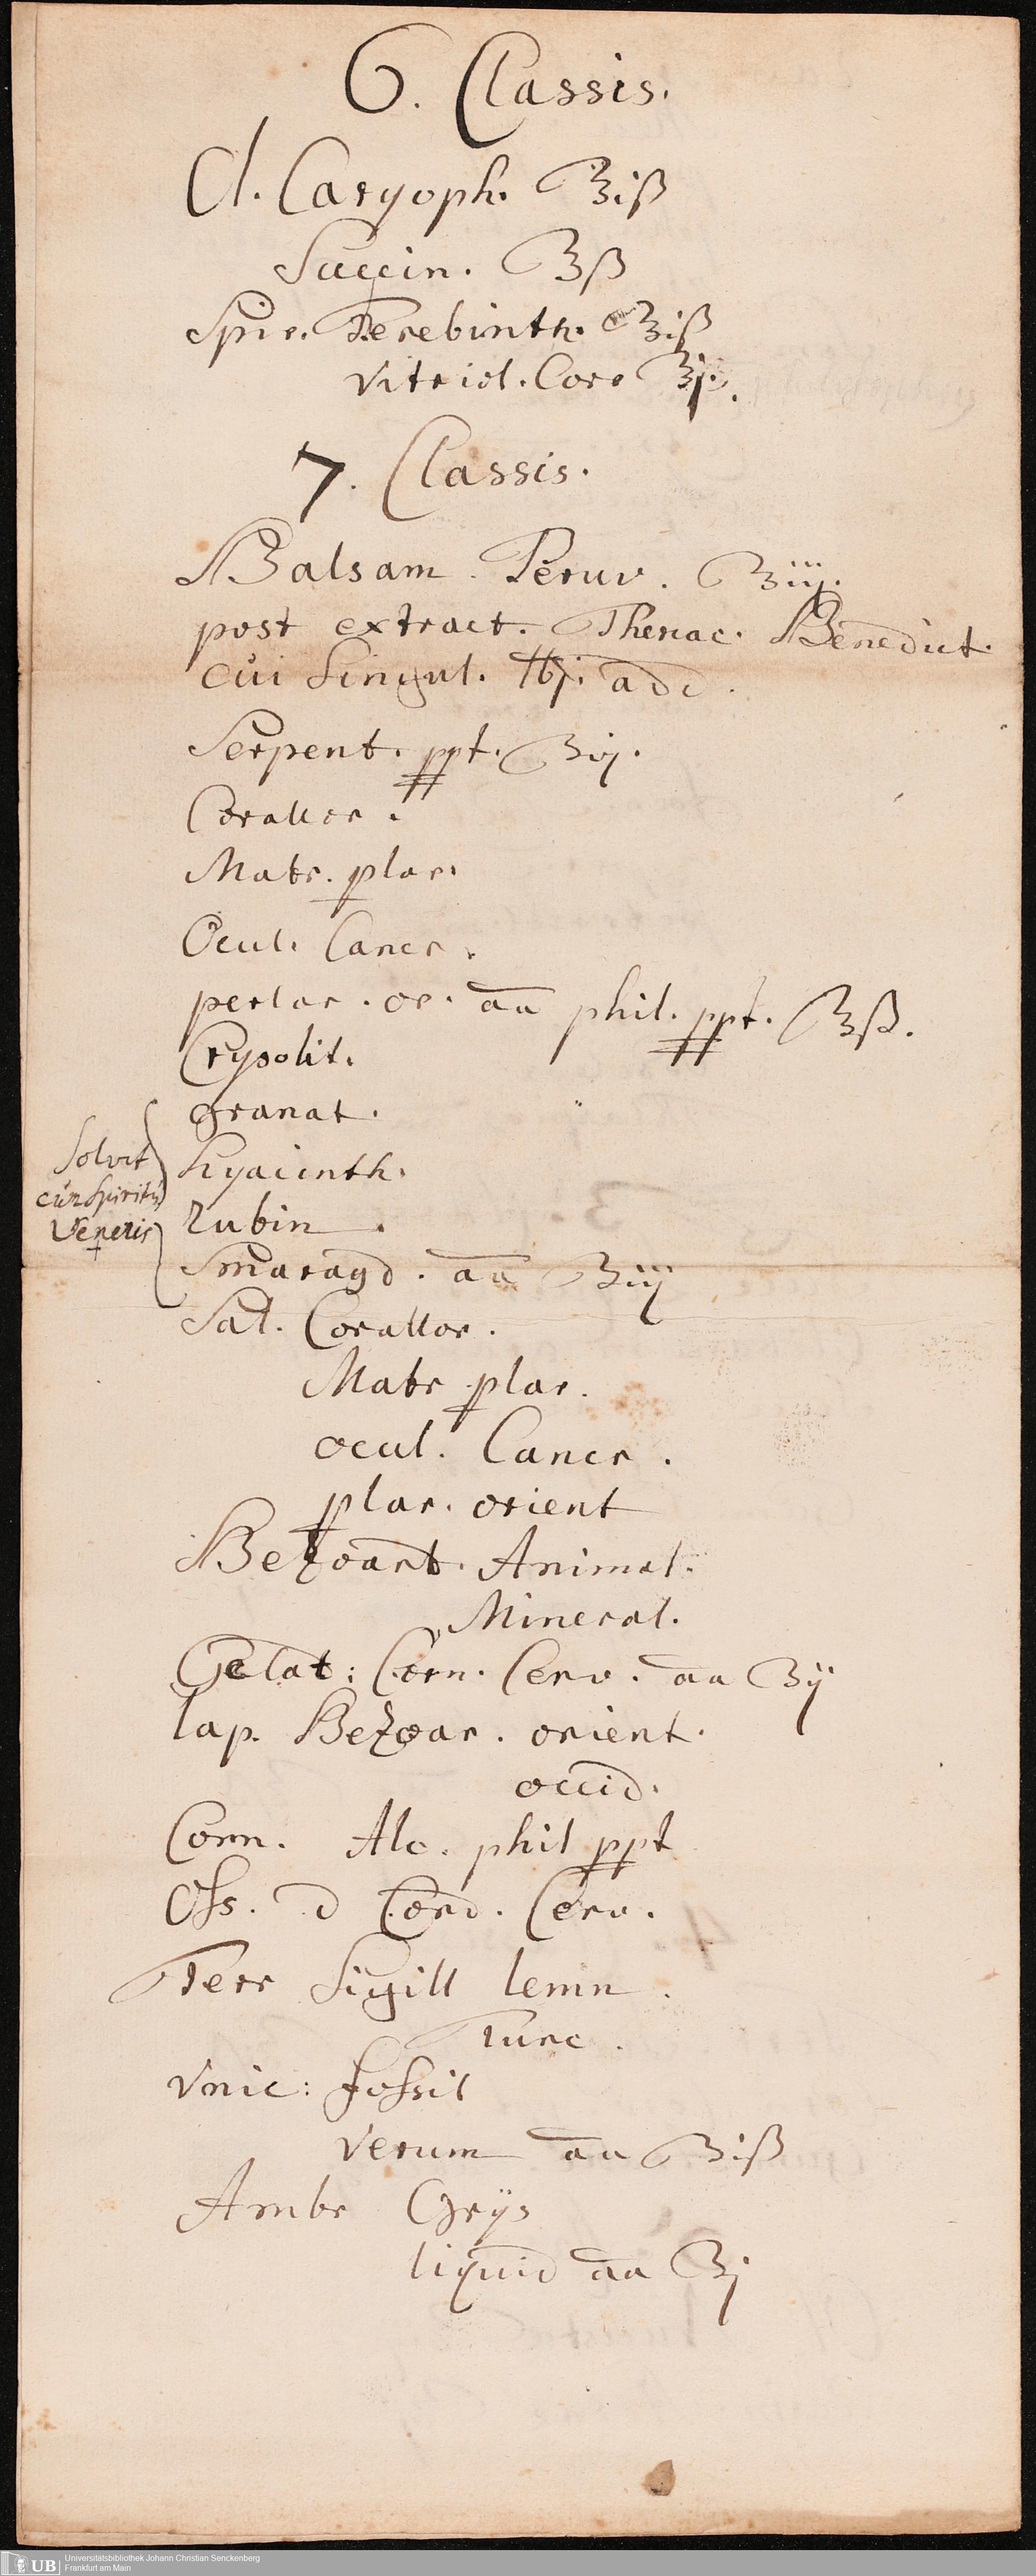 6. Classis.
Ol. Caryoph. ʒiß
Succin. ʒß
Spir. Terebinth. ʒiß
Vitriol. Corr ʒj.
7. Classis.
Balsam. Peruv. ʒiij.
post extract. Theriac. Benedict.
cui singul. ℔j. add.
Serpent. ppt. ʒij.
Corallor.
Matr. plar.
Ocul. Cancr.
perlar. or. aa phil. ppt. ʒß.
Crysolit.
granat.
hyacinth.
rubin.
Smaragd. aa ʒiij
Solvit
cum Spiritu
Veneris
Sal. Corallor.
Matr plar.
ocul. Cancr.
plar. orient
Bezoart. Animal.
Mineral.
Gelat: Corn. Cerv. aa ʒij
lap. Bezoar. orient.
occid.
Corn. Alc. phil ppt
Oss. d Cord. Cerv.
Terr Sigill lemn.
Turc.
Unic: fossil
verum aa ʒiß
Ambr Grÿs
liquid aa ʒj
UB
Universitätsbibliothek Johann Christian Senckenberg
Frankfurt am Main